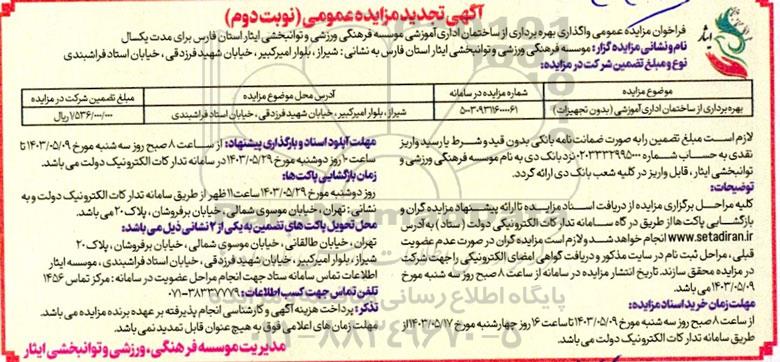 آگهی تجدید مزایده عمومی (نوبت دوم)
فراخوان مزایده عمومی واگذاری بهره برداری از ساختمان اداری آموزشی موسسه فرهنگی ورزشی و توانبخشی ایثار استان فارس برای مدت یکسال
نام و نشانی مزایده گزار: موسسه فرهنگی ورزشی و توانبخشی ایثار استان فارس به نشانی: شیراز، بلوار امیرکبیر، خیابان شهید فرزدقی، خیابان استاد فراشبندی
نوع و مبلغ تضمین شرکت در مزایده:
موضوع مزایده شماره مزایده در سامانه آدرس محل موضوع مزایده مبلغ تضمین شرکت در مزایده
بهره برداری از ساختمان اداری آموزشی (بدون تجهیزات) شیراز، بلوار امیرکبیر، خیابان شهید فرزدقی، خیابان استاد فراشبندی ۱/۵۳۶/۰۰۰/۰۰۰ ریال
لازم است مبلغ تضمین را به صورت ضمانت نامه بانکی بدون قید و شرط یا رسید واریز
نقدی به حساب شماره ۰۲۰۳۳۳۲۹۹۵۰۰۰ نزد بانک دی به نام موسسه فرهنگی ورزشی و
توانبخشی ایثار، قابل واریز در کلیه شعب بانک دی ارائه گردد.
توضیحات:
کلیه مراحل برگزاری مزایده از دریافت اسناد مزایده تا ارائه پیشنهاد مزایده گران و
بازگشایی پاکت‌ها از طریق درگاه سامانه تدارکات الکترونیکی دولت (ستاد) به آدرس
www.setadiran.ir انجام خواهد شد و لازم است مزایده گران در صورت عدم عضویت
قبلی، مراحل ثبت نام در سایت مذکور و دریافت گواهی امضای الکترونیکی را جهت شرکت
در مزایده محقق سازند. تاریخ انتشار مزایده در سامانه از ساعت ۸ صبح روز سه شنبه مورخ
۱۴۰۳/۰۵/۰۹ می باشد.
مهلت زمان خرید اسناد مزایده:
از ساعت ۸ صبح روز سه شنبه مورخ ۱۴۰۳/۰۵/۰۹ تا ساعت ۱۶ روز چهارشنبه مورخ ۱۴۰۳/۰۵/۱۷ از
طریق سامانه تدارکات الکترونیک دولت می باشد.
مهلت آپلود اسناد و بارگذاری پیشنهاد: از ساعت ۸ صبح روز سه شنبه مورخ ۱۴۰۳/۰۵/۰۹ تا
ساعت ۱۰ روز دوشنبه مورخ ۱۴۰۳/۰۵/۲۹ در سامانه تدارکات الکترونیک دولت می باشد.
زمان بازگشایی پاکت‌ها:
روز دوشنبه مورخ ۱۴۰۳/۰۵/۲۹ ساعت ۱۱ ظهر از طریق سامانه تدارکات الکترونیک دولت و به
نشانی: تهران، خیابان موسوی شمالی، خیابان برفروشان، پلاک ۲۰ می باشد.
محل تحویل پاکت های تضمین به یکی از ۲ نشانی ذیل می باشد:
تهران، خیابان طالقانی، خیابان موسوی شمالی، خیابان برفروشان، پلاک ۲۰
شیراز، بلوار امیرکبیر، خیابان شهید فرزدقی، خیابان استاد فراشبندی، موسسه ایثار
اطلاعات تماس سامانه ستاد جهت انجام مراحل عضویت در سامانه: مرکز تماس ۱۴۵۶
تلفن تماس جهت کسب اطلاعات: ۰۷۱-۳۸۳۳۰۷۷۹
تذکر: پرداخت هزینه آگهی و کارشناسی انجام پذیرفته بر عهده برنده مزایده می باشد.
مهلت زمان های اعلامی فوق به هیچ عنوان قابل تمدید نمی باشد.
مدیریت موسسه فرهنگی، ورزشی و توانبخشی ایثار